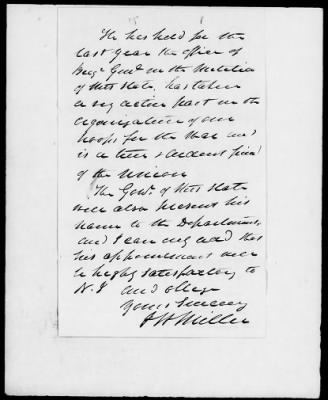 He has held for the
last year the office of
Brigr Genl. in the Militia
of this State, has taken
a very active part in the
organization of our
troops for the War and
is a true & ardent friend
of the Union
The Govr. of this State
will also present his
name to the Department,
and I can only add that
his appointment will
be highly satisfactory to
N.J and oblige
Yours Sincerely
Miller